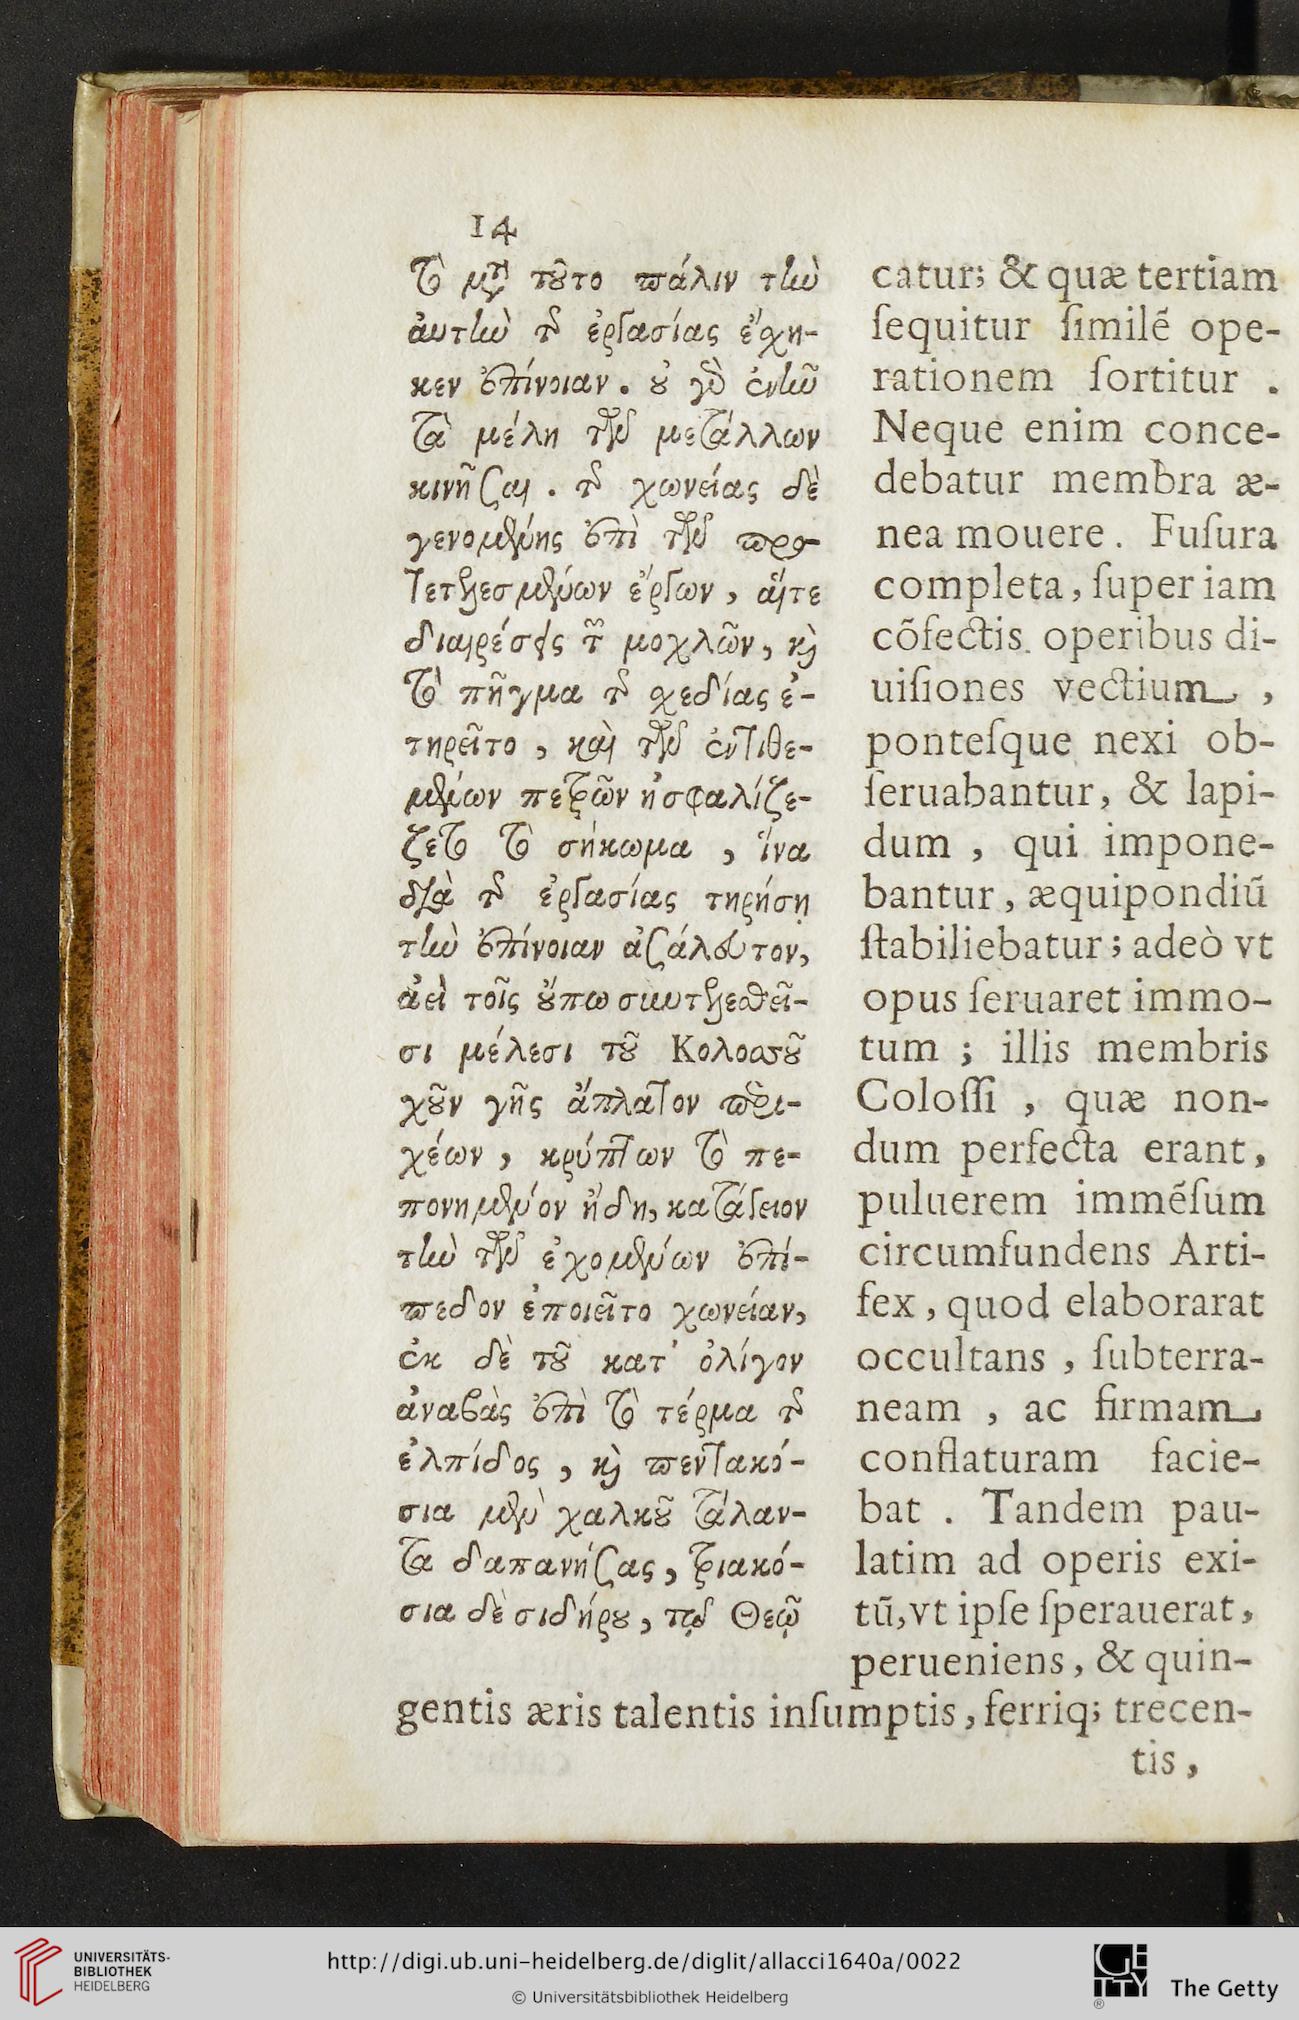 14
τὸ μετὰ τοῦτο πάλιν τὴν
ἀυτὴν τῆς ἐργασίας ἔχη-
κεν ἐπίνοιαν. οὐ γὰρ ἐνῆν
τὰ μέλη τῶν μετάλλων
κινῆσαι. τῆς χωνείας δὲ
γενομένης ἐπὶ τῶν προ-
τετελεσμένων ἔργων, αἵτε
διαιρέσεις τῶν μοχλῶν, καὶ
τὸ πῆγμα τῆς σχεδίας ἐ-
τηρεῖτο, καὶ τῶν ἐντιθε-
μένων πετρῶν ἠσφαλίζε-
ζετο τὸ σήκωμα, ἵνα
διὰ τῆς ἐργασίας τηρήσῃ
τὴν ἐπίνοιαν ἀσάλευτον,
ἀεὶ τοῖς οὔπω συντελεσθεῖ-
σι μέλεσι τοῦ Κολοσσοῦ
χοῦν γῆς ἄπλατον περι-
χέων, κρύπτων τὸ πε-
πονημένον ἤδη, κατάγειον
τὴν τῶν ἐχομένων ἐπί-
πεδον ἐποιεῖτο χωνείαν,
ἐκ δὲ τοῦ κατ' ὀλίγον
ἀναβὰς ἐπὶ τὸ τέρμα τῆς
ἐλπίδος, καὶ πεντακό-
σια μὲν χαλκοῦ τάλαν-
τα δαπανήσας, τριακό-
σια δὲ σιδήρου, τῷ Θεῷ
catur; & quæ tertiam
ſequitur ſimilẽ ope-
rationem ſortitur .
Neque enim conce-
debatur membra æ-
nea mouere. Fuſura
completa, ſuper iam
cõfectis operibus di-
uiſiones vectium ,
ponteſque nexi ob-
ſeruabantur, & lapi-
dum , qui impone-
bantur, æquipondiũ
ſtabiliebatur; adeò vt
opus ſeruaret immo-
tum ; illis membris
Coloſſi , quæ non-
dum perfecta erant,
puluerem immẽſum
circumfundens Arti-
fex, quod elaborarat
occultans , ſubterra-
neam , ac firmam
conflaturam facie-
bat . Tandem pau-
latim ad operis exi-
tũ, vt ipſe ſperauerat,
perueniens, & quin-
gentis æris talentis inſumptis, ferriq; trecen-
tis,
UNIVERSITÄTS-
BIBLIOTHEK
HEIDELBERG
http://digi.ub.uni-heidelberg.de/diglit/allacci1640a/0022
© Universitätsbibliothek Heidelberg
GETTY
®
The Getty